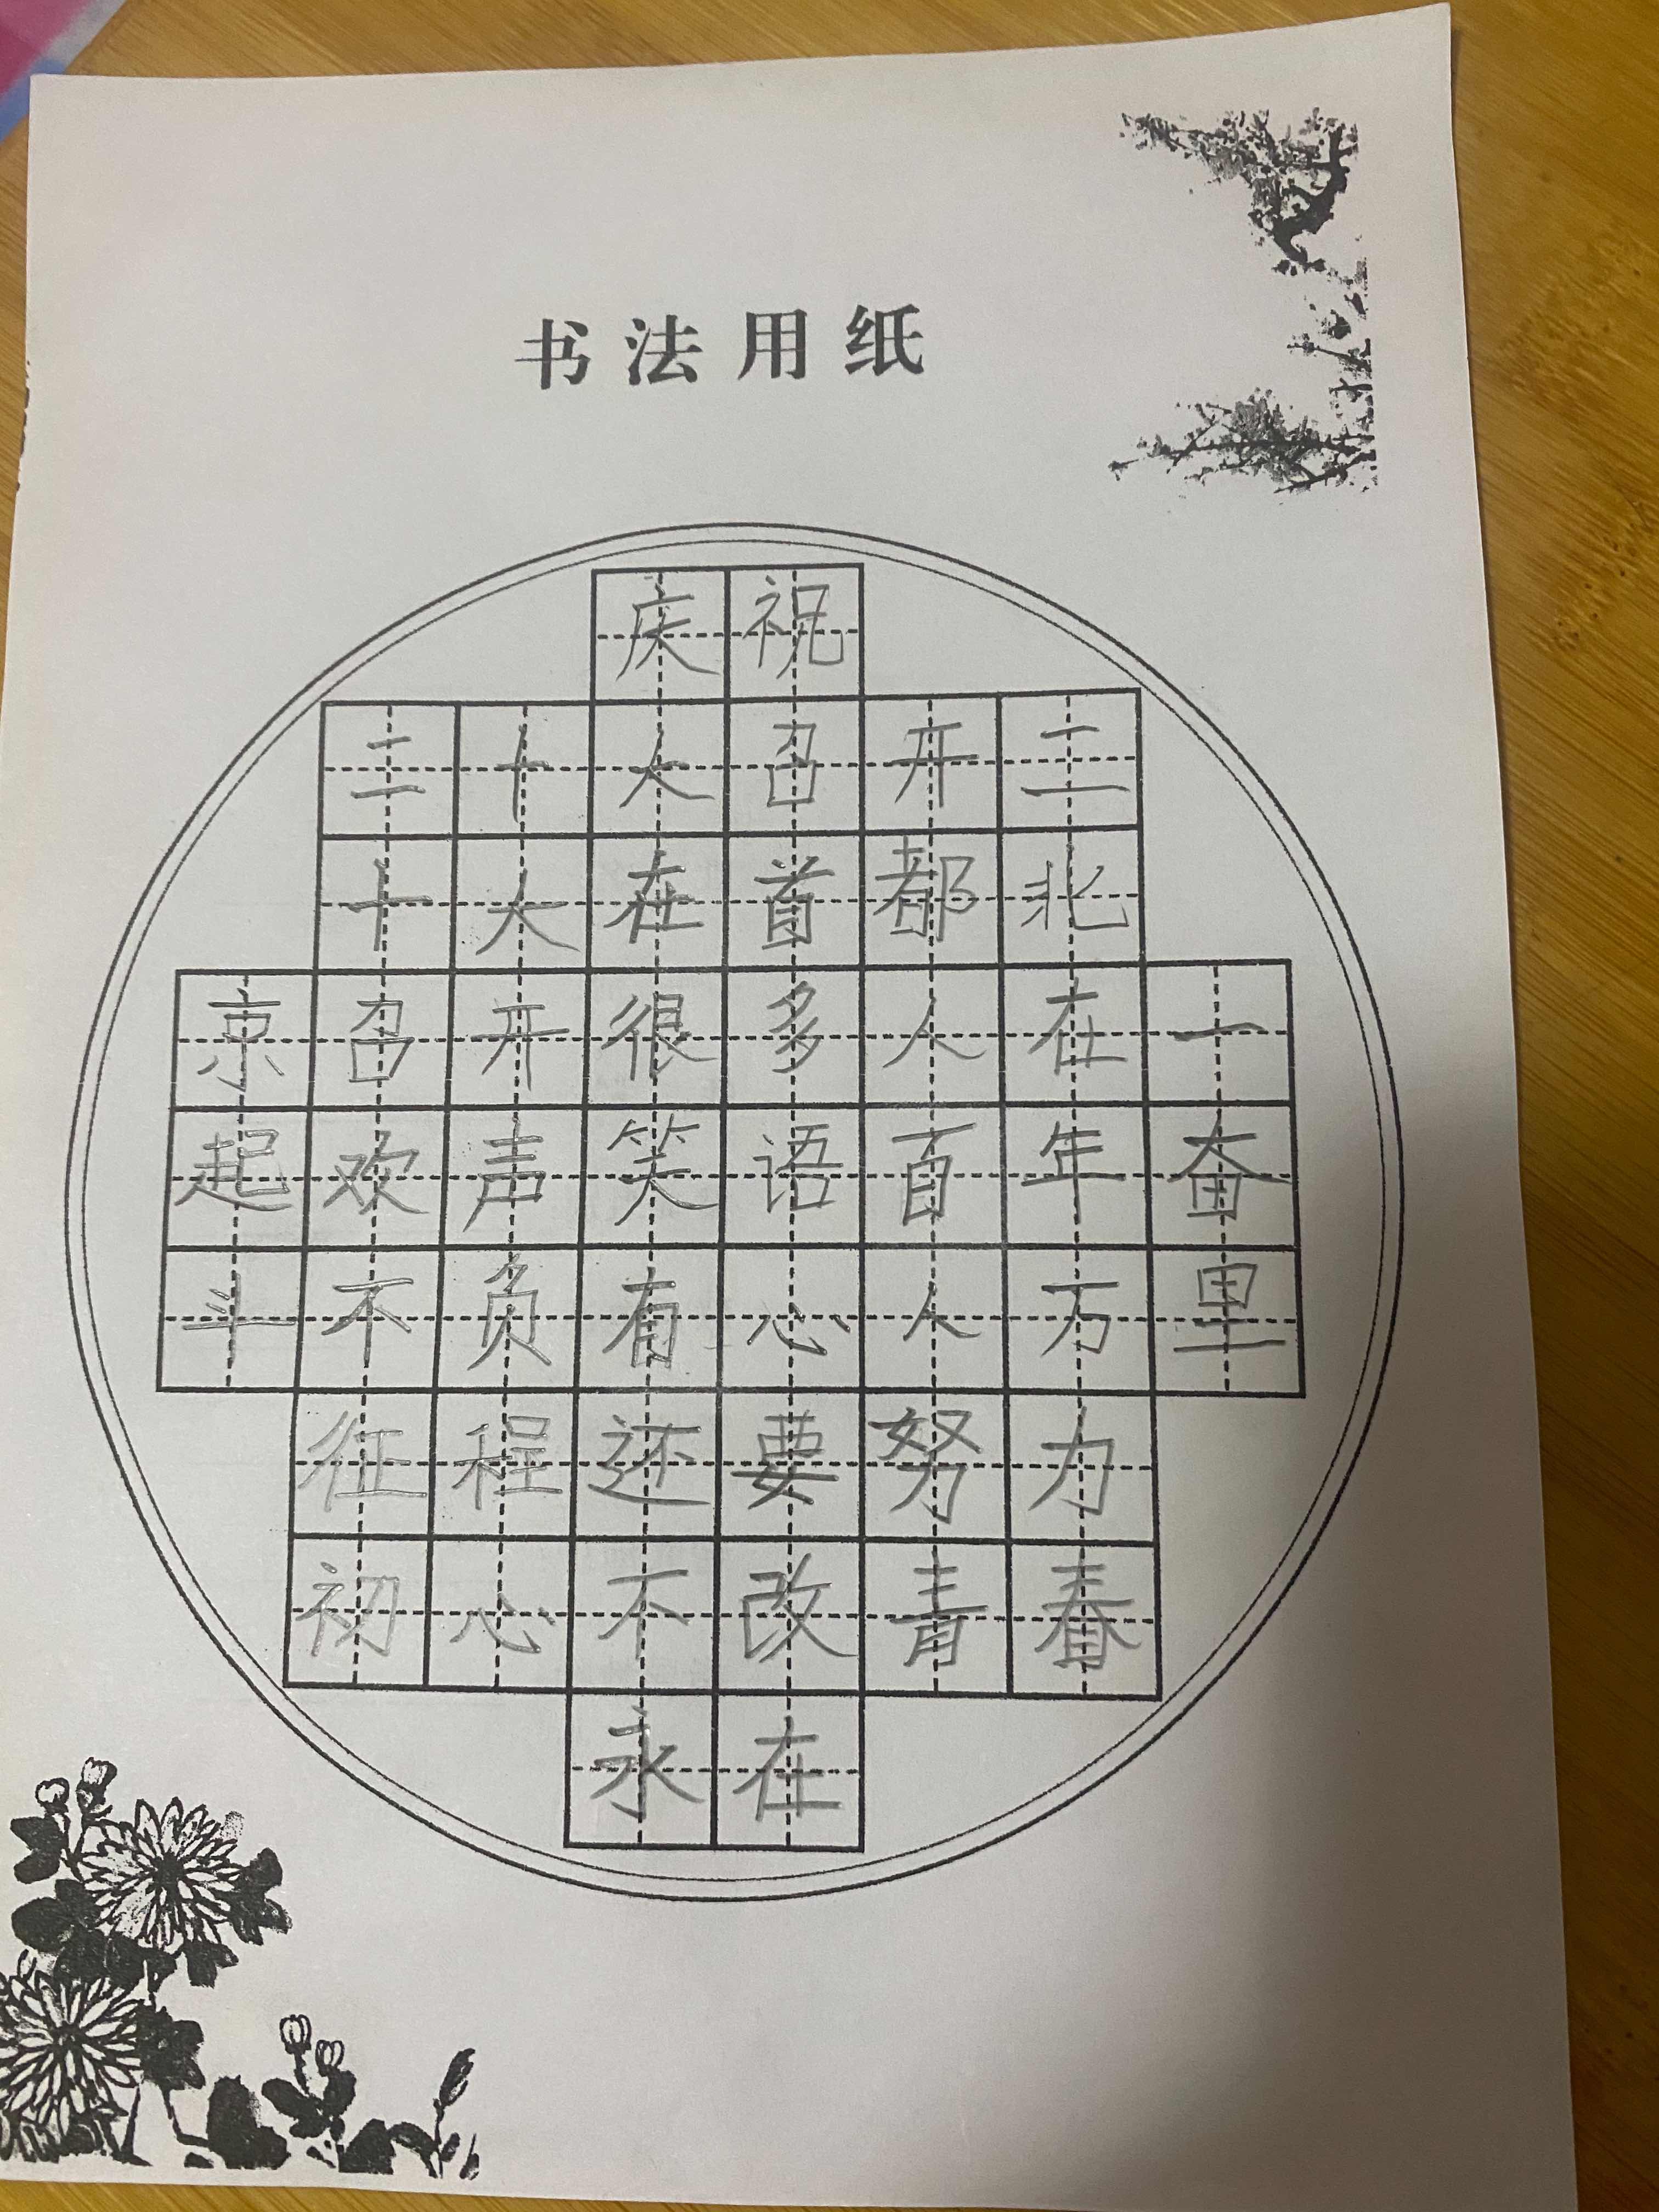 书法用纸
庆祝
二十大召开二
十大在首都北
京召开很多人在一
起欢声笑语百年奋
斗不负有心人万里
征程还要努力
初心不改青春
永在